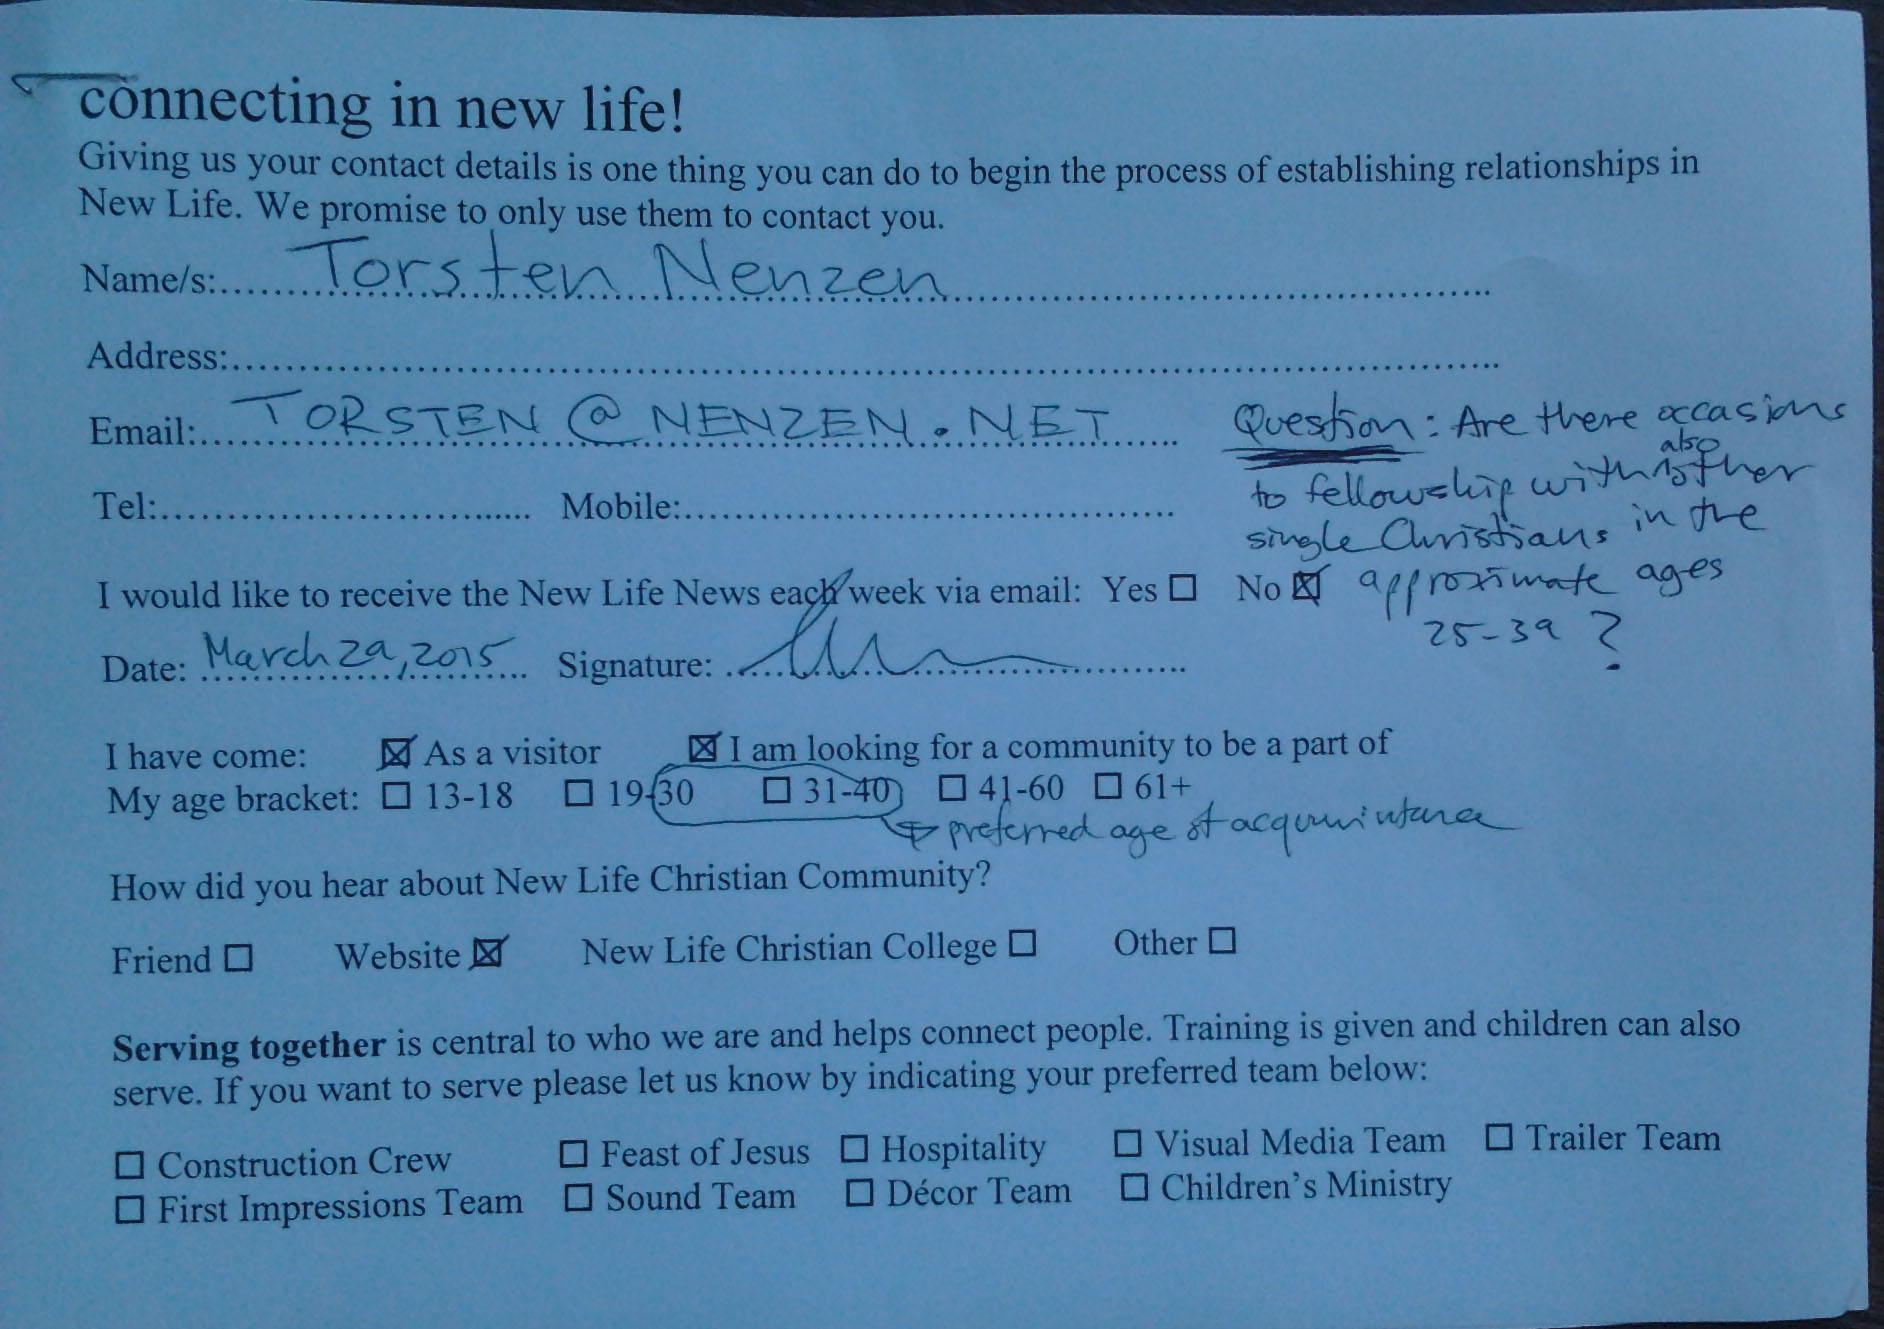 connecting in new life!
Giving us your contact details is one thing you can do to begin the process of establishing relationships in
New Life. We promise to only use them to contact you.
Name/s:..........Torsten Nenzen..........
Address:..........
Email:..........TORSTEN @ NENZEN.NET..........
Question: Are there occasions
also
to fellowship with other
single Christians in the
approximate ages
25-39 ?
Tel:.......... Mobile:..........
I would like to receive the New Life News each week via email: Yes ☐ No ☒
Date: March 29, 2015 Signature: ..........
I have come: ☒ As a visitor ☒ I am looking for a community to be a part of
My age bracket: ☐ 13-18 ☐ 19-30 ☐ 31-40 ☐ 41-60 ☐ 61+
preferred age of acquaintance
How did you hear about New Life Christian Community?
Friend ☐ Website ☒ New Life Christian College ☐ Other ☐
Serving together is central to who we are and helps connect people. Training is given and children can also
serve. If you want to serve please let us know by indicating your preferred team below:
☐ Construction Crew ☐ Feast of Jesus ☐ Hospitality ☐ Visual Media Team ☐ Trailer Team
☐ First Impressions Team ☐ Sound Team ☐ Décor Team ☐ Children's Ministry